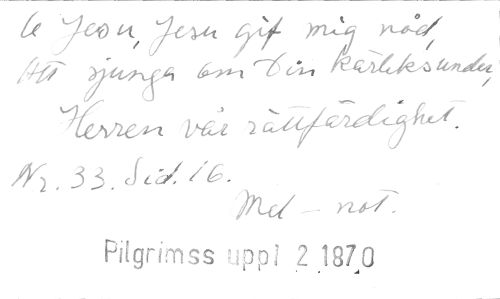 O Jesu, Jesu gif mig nåd,
Att sjunga om Din kärleksunder,
Herren vår rättfärdighet.
Nr. 33. Sid. 16.
Med - not.
Pilgrimss uppl 2 1870